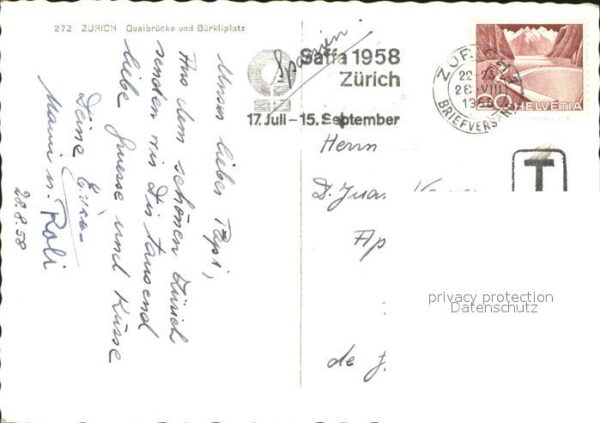 272 ZURICH Quaibrücke und Bürkliplatz
Unser lieber Papi,
Aus dem schönen Zürich
senden wir Dir tausend
liebe Grüesse und Küsse
Deine
Mami u. Roli
28.8.58
Saffa 1958
Zürich
17. Juli - 15. September
Spanien
ZÜRICH
28.VIII
1958
BRIEFVERSAND
20 HELVETIA
T
Herrn
D. Juan
Ap
de J.
privacy protection
Datenschutz